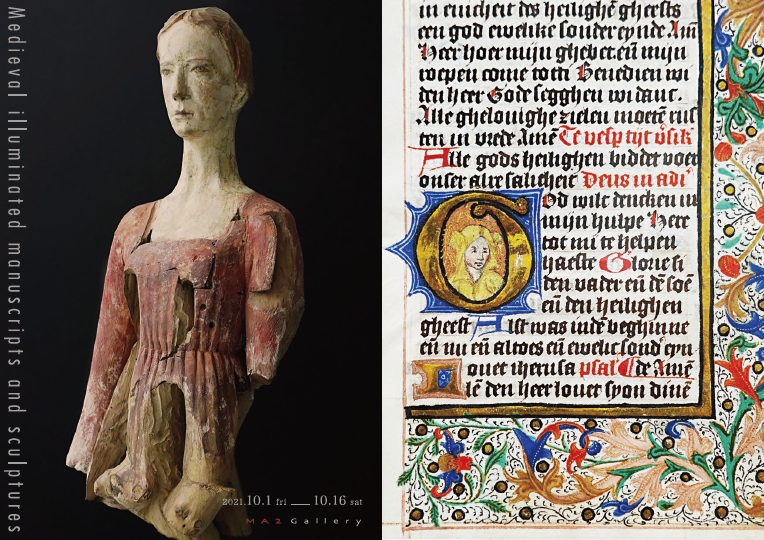 Medieval illuminated manuscripts and sculptures
2021.10.1 fri — 10.16 sat
MA2 Gallery
in enicheit des heilighē gheests
een god ewelike sonder eynde Amē
Heer hoer mijn ghebet. eñ mijn
roepen come tot ti Benedien wi
den heer Gode segghen wi danc.
Alle ghelouighe zielen moetē rus
ten in vrede Amē Te vesp tijt v̄sik̄
Alle gods heilighen biddet voer
onser alre salicheit Deus in adi
God wilt dencken in
mijn hulpe Heer
tot mi te helpen
haeste Glorie si
den vader eñ dē soē
eñ den heilighen
gheest Alst was indē beghinne
eñ nu eñ altoes eñ ewelic sond eyn
louet iherusa psal de Amē
lē den heer louet syon dinē